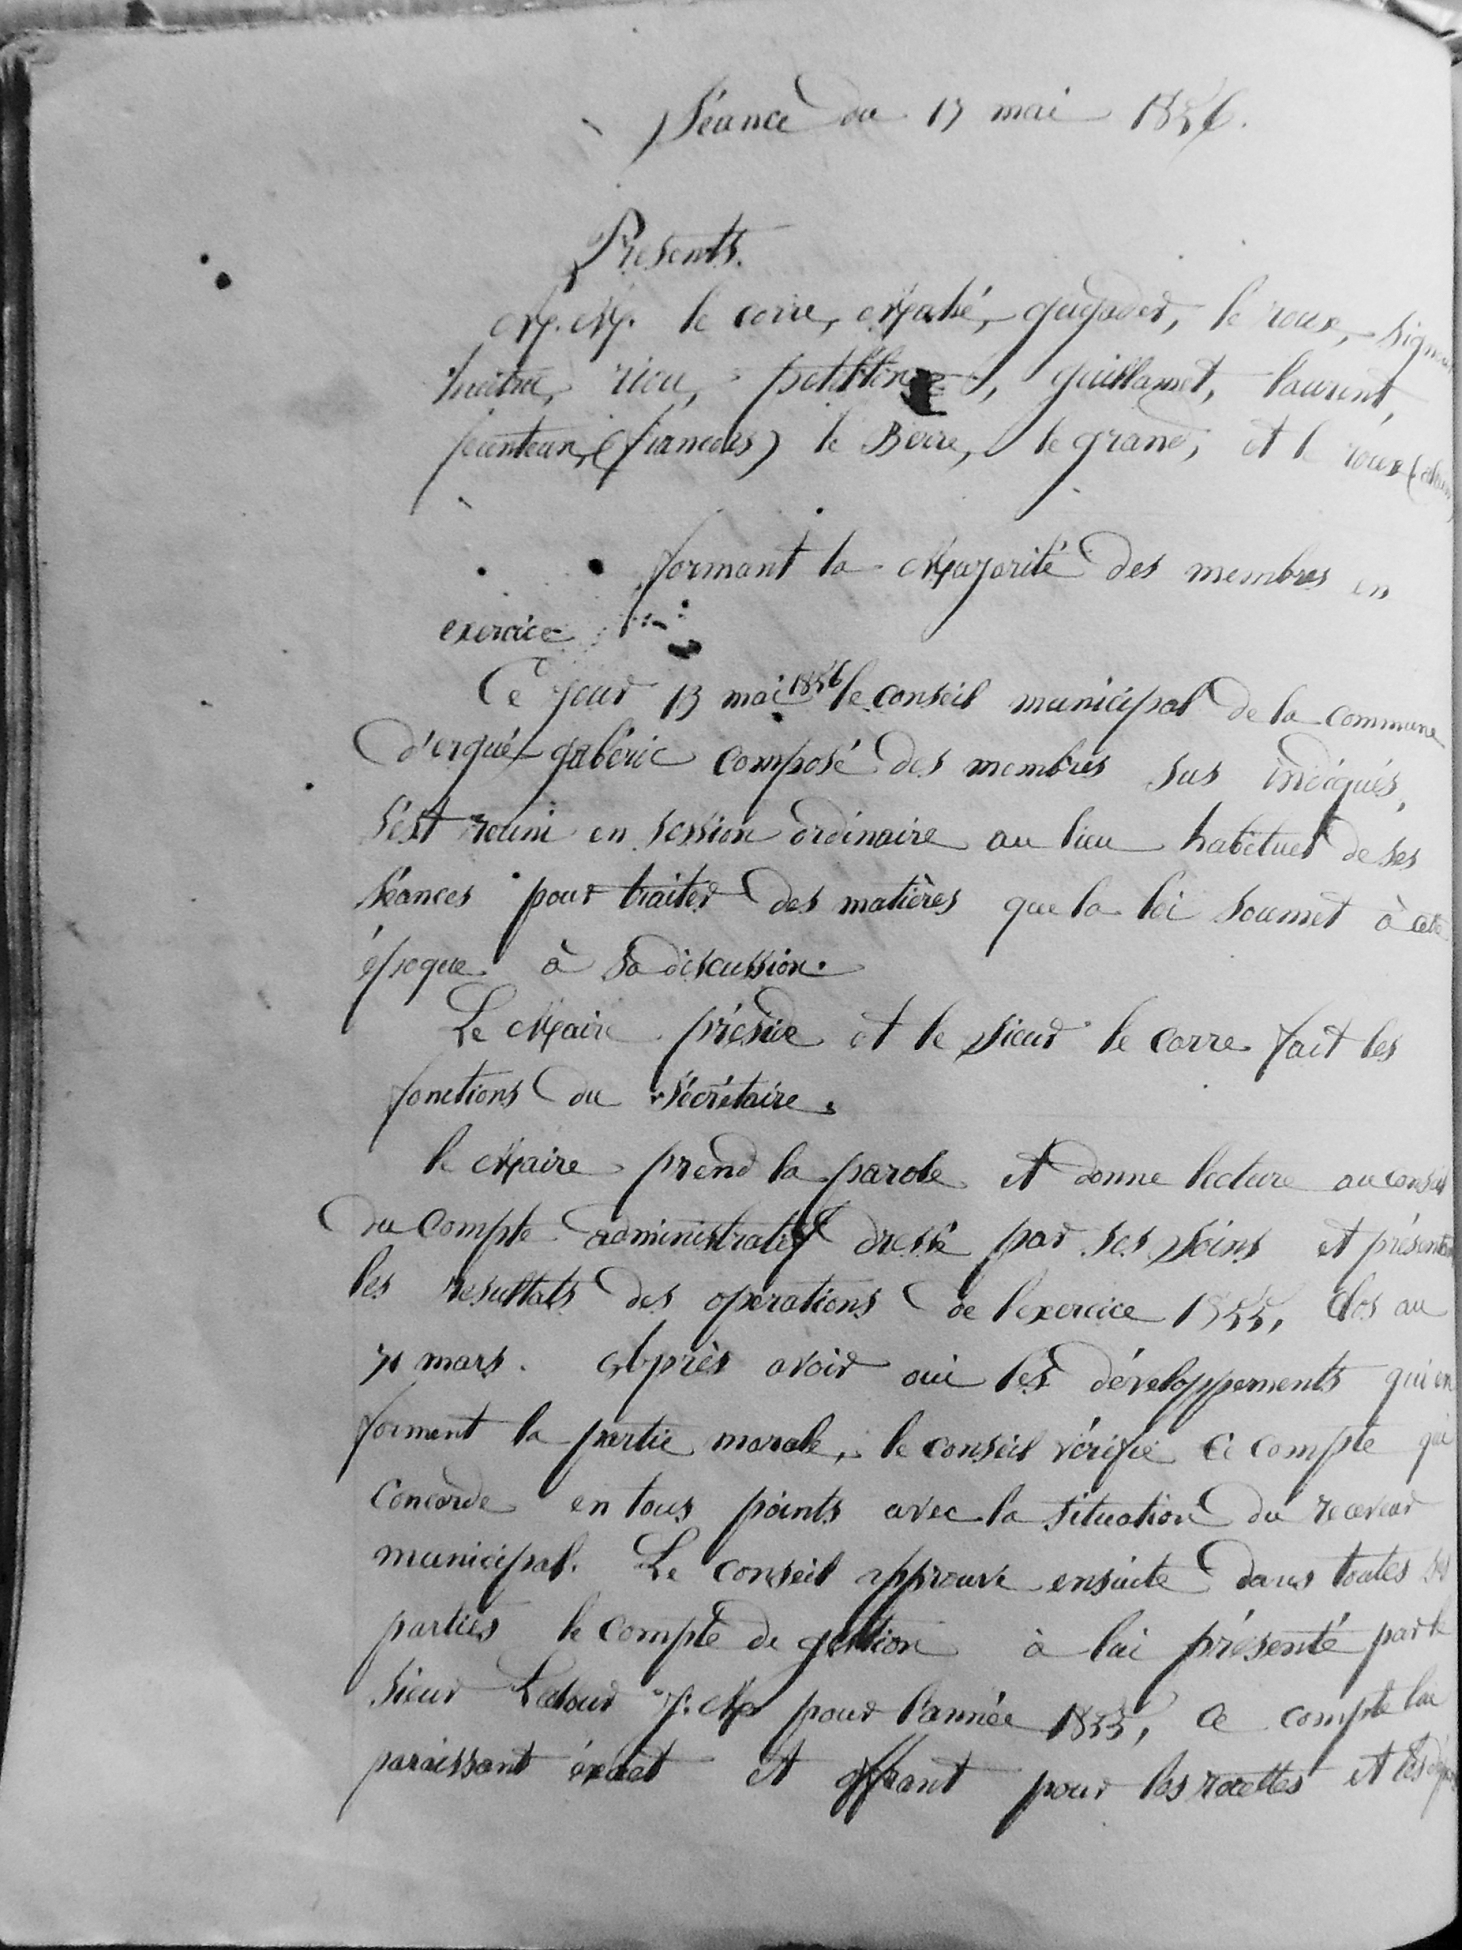 Séance du 13 mai 1856.
Présents.
M.M. le corre, Mahé, guyader, le roux, Signour
huitric, riou, petitbon, guillamet, laurent,
feunteun, (francois) le Berre, le grand, et le roux (alain)
formant la Majorité des membres en
exercice
Ce jour 13 mai 1856 le conseil municipal de la commune
d'ergué-gabéric composé des membres sus indiqués,
s'est reuni en session ordinaire au lieu habituel de ses
séances pour traiter des matières que la loi soumet à cette
époque à sa discussion.
Le Maire préside et le sieur le corre fait les
fonctions du sécrétaire.
le Maire prend la parole et donne lecture au conseil
du compte administratif dressé par ses soins et présentant
les resultats des operations de l'exercice 1855, clos au
31 mars. Après avoir oui les développements qui en
forment la partie morale, le conseil vérifie ce compte qui
concorde en tous points avec la situation du receveur
municipal. Le conseil approuve ensuite dans toutes ses
parties le compte de gestion à lui présenté par le
sieur pour l'année 1855, ce compte lui
paraissant éxact et offrant pour les recettes et les